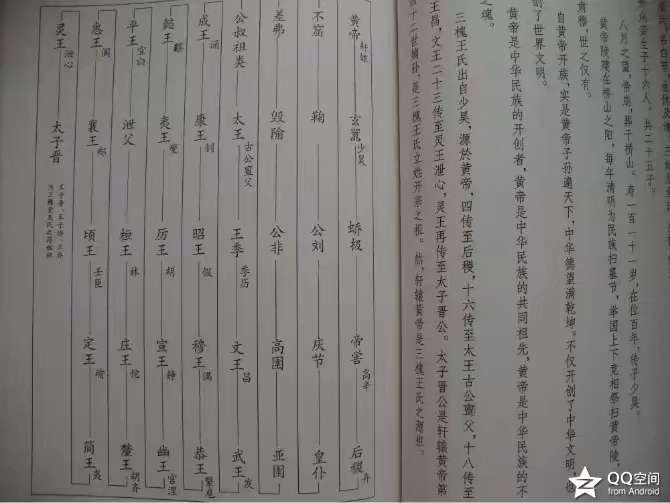 生子十六人。共二十五子。
八月之望,帝崩,葬于桥山。寿一百一十一岁,在位百年,传于少昊。
黄帝陵建在桥山之阳,每年清明为民族扫墓节,举国上下竞相祭扫黄帝陵,
肃穆,世之仅有。
自黄帝开族,实是黄帝子孙遍天下,中华德望满乾坤。不仅开创了中华文明,也
创了世界文明。
黄帝是中华民族的开创者,黄帝是中华民族的共同祖先,黄帝是中华民族的不
之魂。
三槐王氏出自少昊,源於黄帝,四传至后稷,十六传至太王古公亶父,十八传至
王昌,文王二十三传至灵王泄心,灵王再传至太子晋公。太子晋公是轩辕黄帝第
十二世嫡孙,是三槐王氏立姓开宗之祖。然,轩辕黄帝是三槐王氏之源祖。
黄帝 轩辕 玄嚣 少昊 蟜极 帝喾 高辛 后稷 弃
不窋 鞠 公刘 庆节 皇仆
差弗 毁隃 公非 高圉 亚圉
公叔祖类 太王 古公亶父 王季 季历 文王 昌 武王 发
成王 诵 康王 钊 昭王 瑕 穆王 满 恭王 繄扈
懿王 囏 夷王 燮 厉王 胡 宣王 静 幽王 宫湦
平王 宜臼 泄父 桓王 林 庄王 佗 釐王 胡齐
惠王 阆 襄王 郑 顷王 壬臣 定王 瑜 简王 夷
灵王 泄心 太子晋
QQ空间
from Android